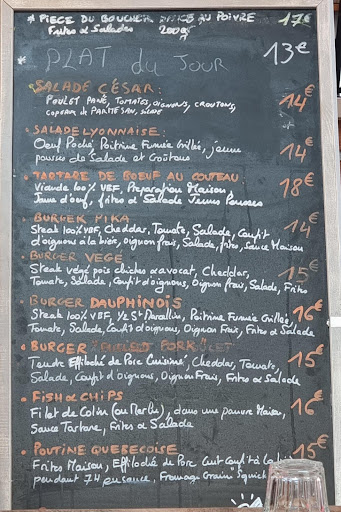 * PIECE DU BOUCHER SAUCE AU POIVRE 17€
Frites & Salades 200g
* PLAT du JOUR 13€
SALADE CÉSAR : 14€
POULET PANÉ, TOMATES, OIGNONS, CROUTONS,
COPEAUX DE PARMESAN, SALADE
SALADE LYONNAISE : 14€
Oeuf Poché, Poitrine Fumée Grillée, jeune
pousses de Salade et Croûtons
• TARTARE DE BOEUF AU COUTEAU 18€
Viande 100% VBF, Preparation Maison,
Jaune d'oeuf, frites & Salade Jeunes Pousses
• BURGER PIKA 14€
Steak 100% VBF, Cheddar, Tomate, Salade, Confit
d'oignons à la bière, Oignon frais, Salade, frites, Sauce Maison
• BURGER VEGE 15€
Steak végé pois chiches & avocat, Cheddar,
Tomate, Salade, Confit d'oignons, Oignon frais, Salade, Frites
• BURGER DAUPHINOIS 16€
Steak 100% VBF, 1/2 St Marcellin, Poitrine Fumée Grillée,
Tomate, Salade, Confit d'oignons, Oignon Frais, Frites & Salade
• BURGER PULLED PORK 15€
Tendre Effiloché de Porc Cuisiné, Cheddar, Tomate,
Salade, Confit d'oignons, Oignon Frais, Frites & Salade
• FISH & CHIPS 16€
Filet de Colin (ou Merlu), dans une panure Maison,
Sauce Tartare, Frites & Salade
• POUTINE QUEBECOISE 15€
Frites Maison, Effiloché de Porc Cuit Confit à la bière
pendant 7H en sauce, Fromage Grain "squick